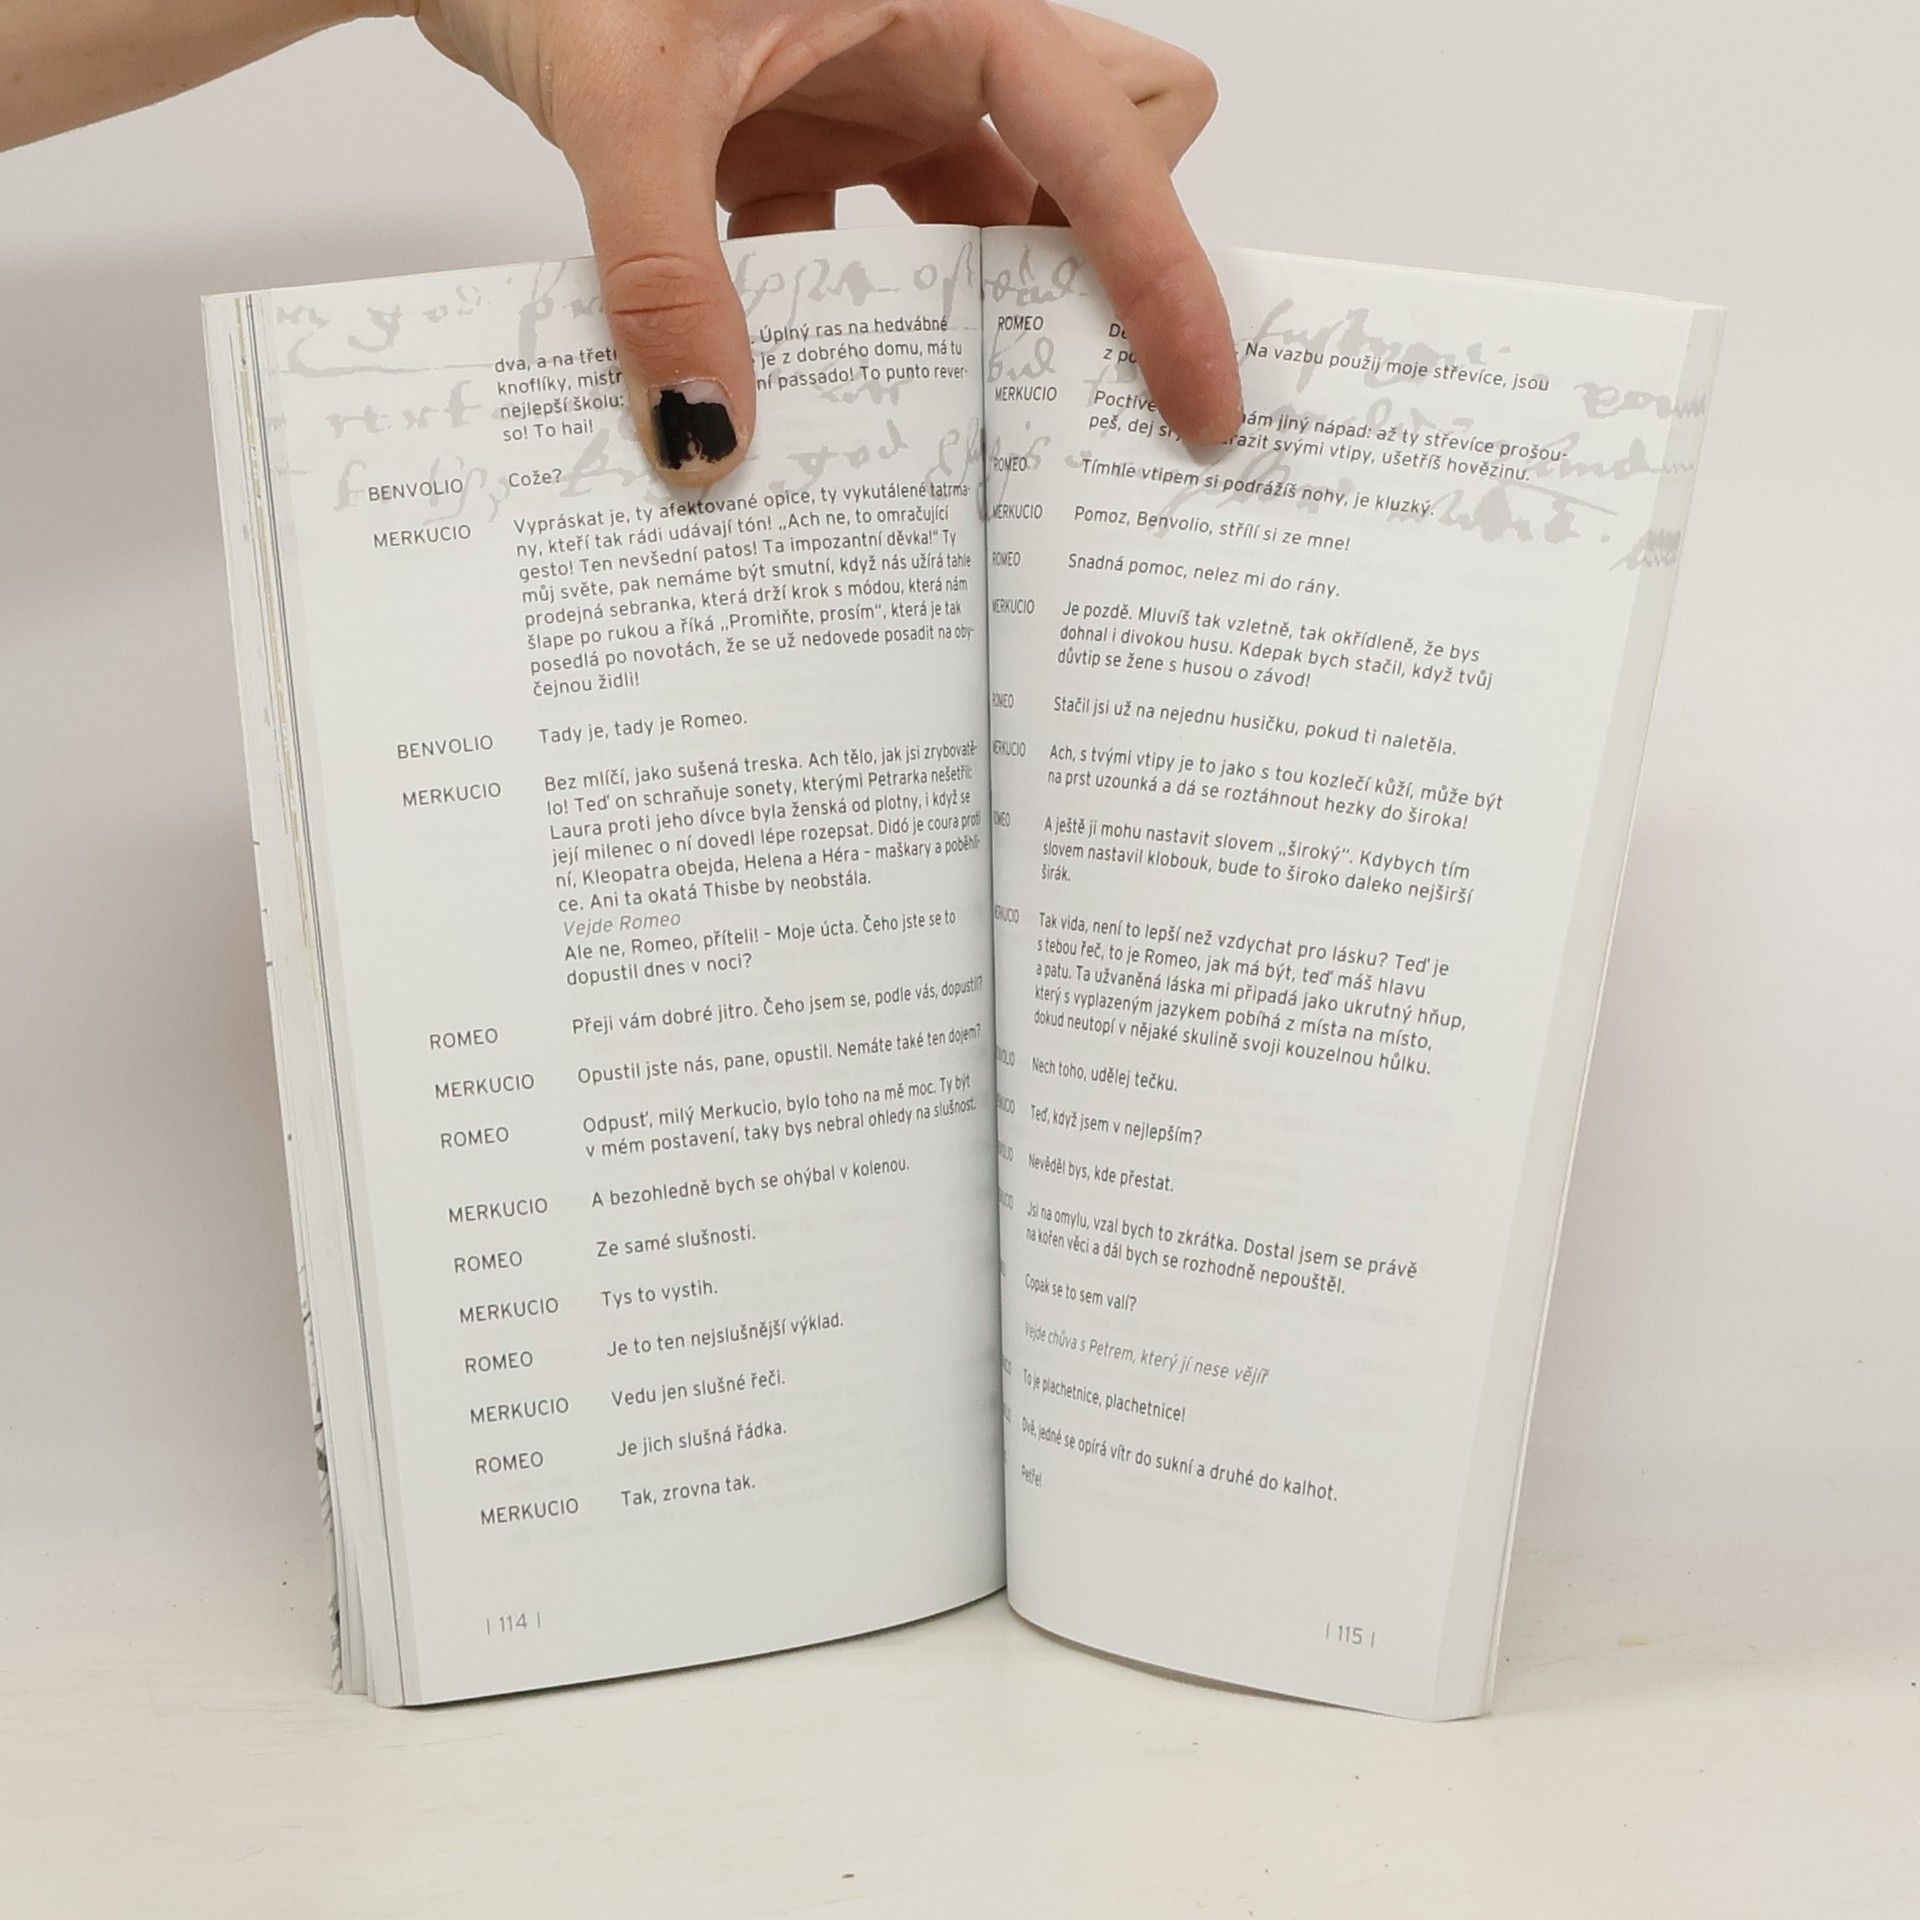 . Úplný ras na hedvábné
dva, a na třetí je z dobrého domu, má tu
knoflíky, mistr ní passado! To punto rever-
nejlepší školu:
so! To hai!
BENVOLIO Cože?
MERKUCIO Vypráskat je, ty afektované opice, ty vykutálené tatrma-
ny, kteří tak rádi udávají tón! „Ach ne, to omračující
gesto! Ten nevšední patos! Ta impozantní děvka!“ Ty
můj světe, pak nemáme být smutní, když nás užírá tahle
prodejná sebranka, která drží krok s módou, která nám
šlape po rukou a říká „Promiňte, prosím“, která je tak
posedlá po novotách, že se už nedovede posadit na oby-
čejnou židli!
BENVOLIO Tady je, tady je Romeo.
MERKUCIO Bez mlíčí, jako sušená treska. Ach tělo, jak jsi zrybovatě-
lo! Teď on schraňuje sonety, kterými Petrarka nešetřil:
Laura proti jeho dívce byla ženská od plotny, i když se
její milenec o ní dovedl lépe rozepsat. Didó je coura proti
ní, Kleopatra obejda, Helena a Héra – maškary a poběhli-
ce. Ani ta okatá Thisbe by neobstála.
Vejde Romeo
Ale ne, Romeo, příteli! – Moje úcta. Čeho jste se to
dopustil dnes v noci?
ROMEO Přeji vám dobré jitro. Čeho jsem se, podle vás, dopustil?
MERKUCIO Opustil jste nás, pane, opustil. Nemáte také ten dojem?
ROMEO Odpusť, milý Merkucio, bylo toho na mě moc. Ty být
v mém postavení, taky bys nebral ohledy na slušnost.
MERKUCIO A bezohledně bych se ohýbal v kolenou.
ROMEO Ze samé slušnosti.
MERKUCIO Tys to vystih.
ROMEO Je to ten nejslušnější výklad.
MERKUCIO Vedu jen slušné řeči.
ROMEO Je jich slušná řádka.
MERKUCIO Tak, zrovna tak.
| 114 |
ROMEO Na vazbu použij moje střevíce, jsou
z
MERKUCIO Poctivě mám jiný nápad: až ty střevíce prošou-
peš, dej si svými vtipy, ušetříš hovězinu.
ROMEO Tímhle vtipem si podrážíš nohy, je kluzký.
MERKUCIO Pomoz, Benvolio, střílí si ze mne!
ROMEO Snadná pomoc, nelez mi do rány.
MERKUCIO Je pozdě. Mluvíš tak vzletně, tak okřídleně, že bys
dohnal i divokou husu. Kdepak bych stačil, když tvůj
důvtip se žene s husou o závod!
ROMEO Stačil jsi už na nejednu husičku, pokud ti naletěla.
MERKUCIO Ach, s tvými vtipy je to jako s tou kozlečí kůží, může být
na prst uzounká a dá se roztáhnout hezky do široka!
ROMEO A ještě ji mohu nastavit slovem „široký“. Kdybych tím
slovem nastavil klobouk, bude to široko daleko nejširší
širák.
MERKUCIO Tak vida, není to lepší než vzdychat pro lásku? Teď je
s tebou řeč, to je Romeo, jak má být, teď máš hlavu
a patu. Ta užvaněná láska mi připadá jako ukrutný hňup,
který s vyplazeným jazykem pobíhá z místa na místo,
dokud neutopí v nějaké skulině svoji kouzelnou hůlku.
Nech toho, udělej tečku.
Teď, když jsem v nejlepším?
Nevěděl bys, kde přestat.
Jsi na omylu, vzal bych to zkrátka. Dostal jsem se právě
na kořen věci a dál bych se rozhodně nepouštěl.
Copak se to sem valí?
Vejde chůva s Petrem, který jí nese vějíř
To je plachetnice, plachetnice!
Dvě, jedné se opírá vítr do sukní a druhé do kalhot.
Petře!
| 115 |